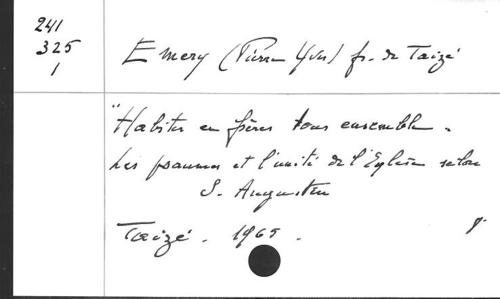 241
325
1
Emery (Pierre Yves) fr. de Taizé
"Habiter en frères tous ensemble.
Les psaumes et l'unité de l'Eglise selon
S. Augustin
Taizé. 1965.